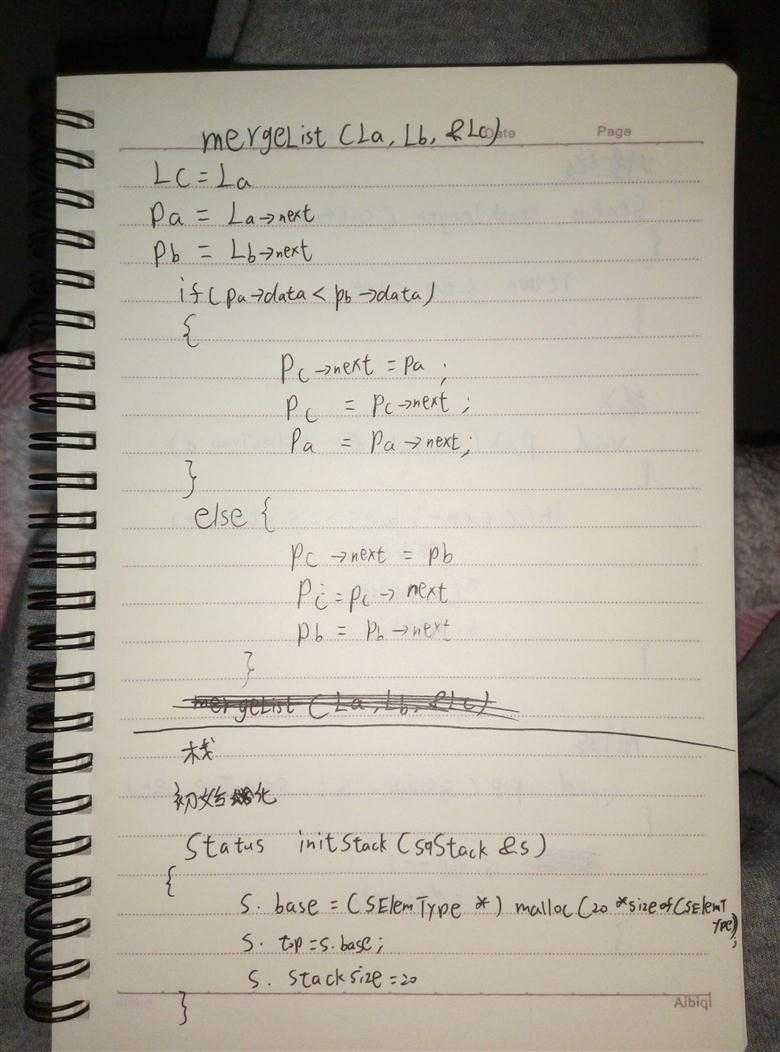 mergeList (La, Lb, &Lc)
Page
LC = La
Pa = La→next
Pb = Lb→next
if (pa→data < pb→data)
{
Pc→next = pa ;
Pc = Pc→next ;
Pa = Pa→next;
}
else {
Pc→next = Pb
Pc = pc→next
Pb = Pb→next
}
mergeList (La, Lb, &Lc)
栈
初始化
Status initStack (SqStack &s)
{
S. base = (SElemType *) malloc (20 *sizeof(SElemT
ype);
S. top = s. base;
S. Stacksize = 20
}
Aibiqi